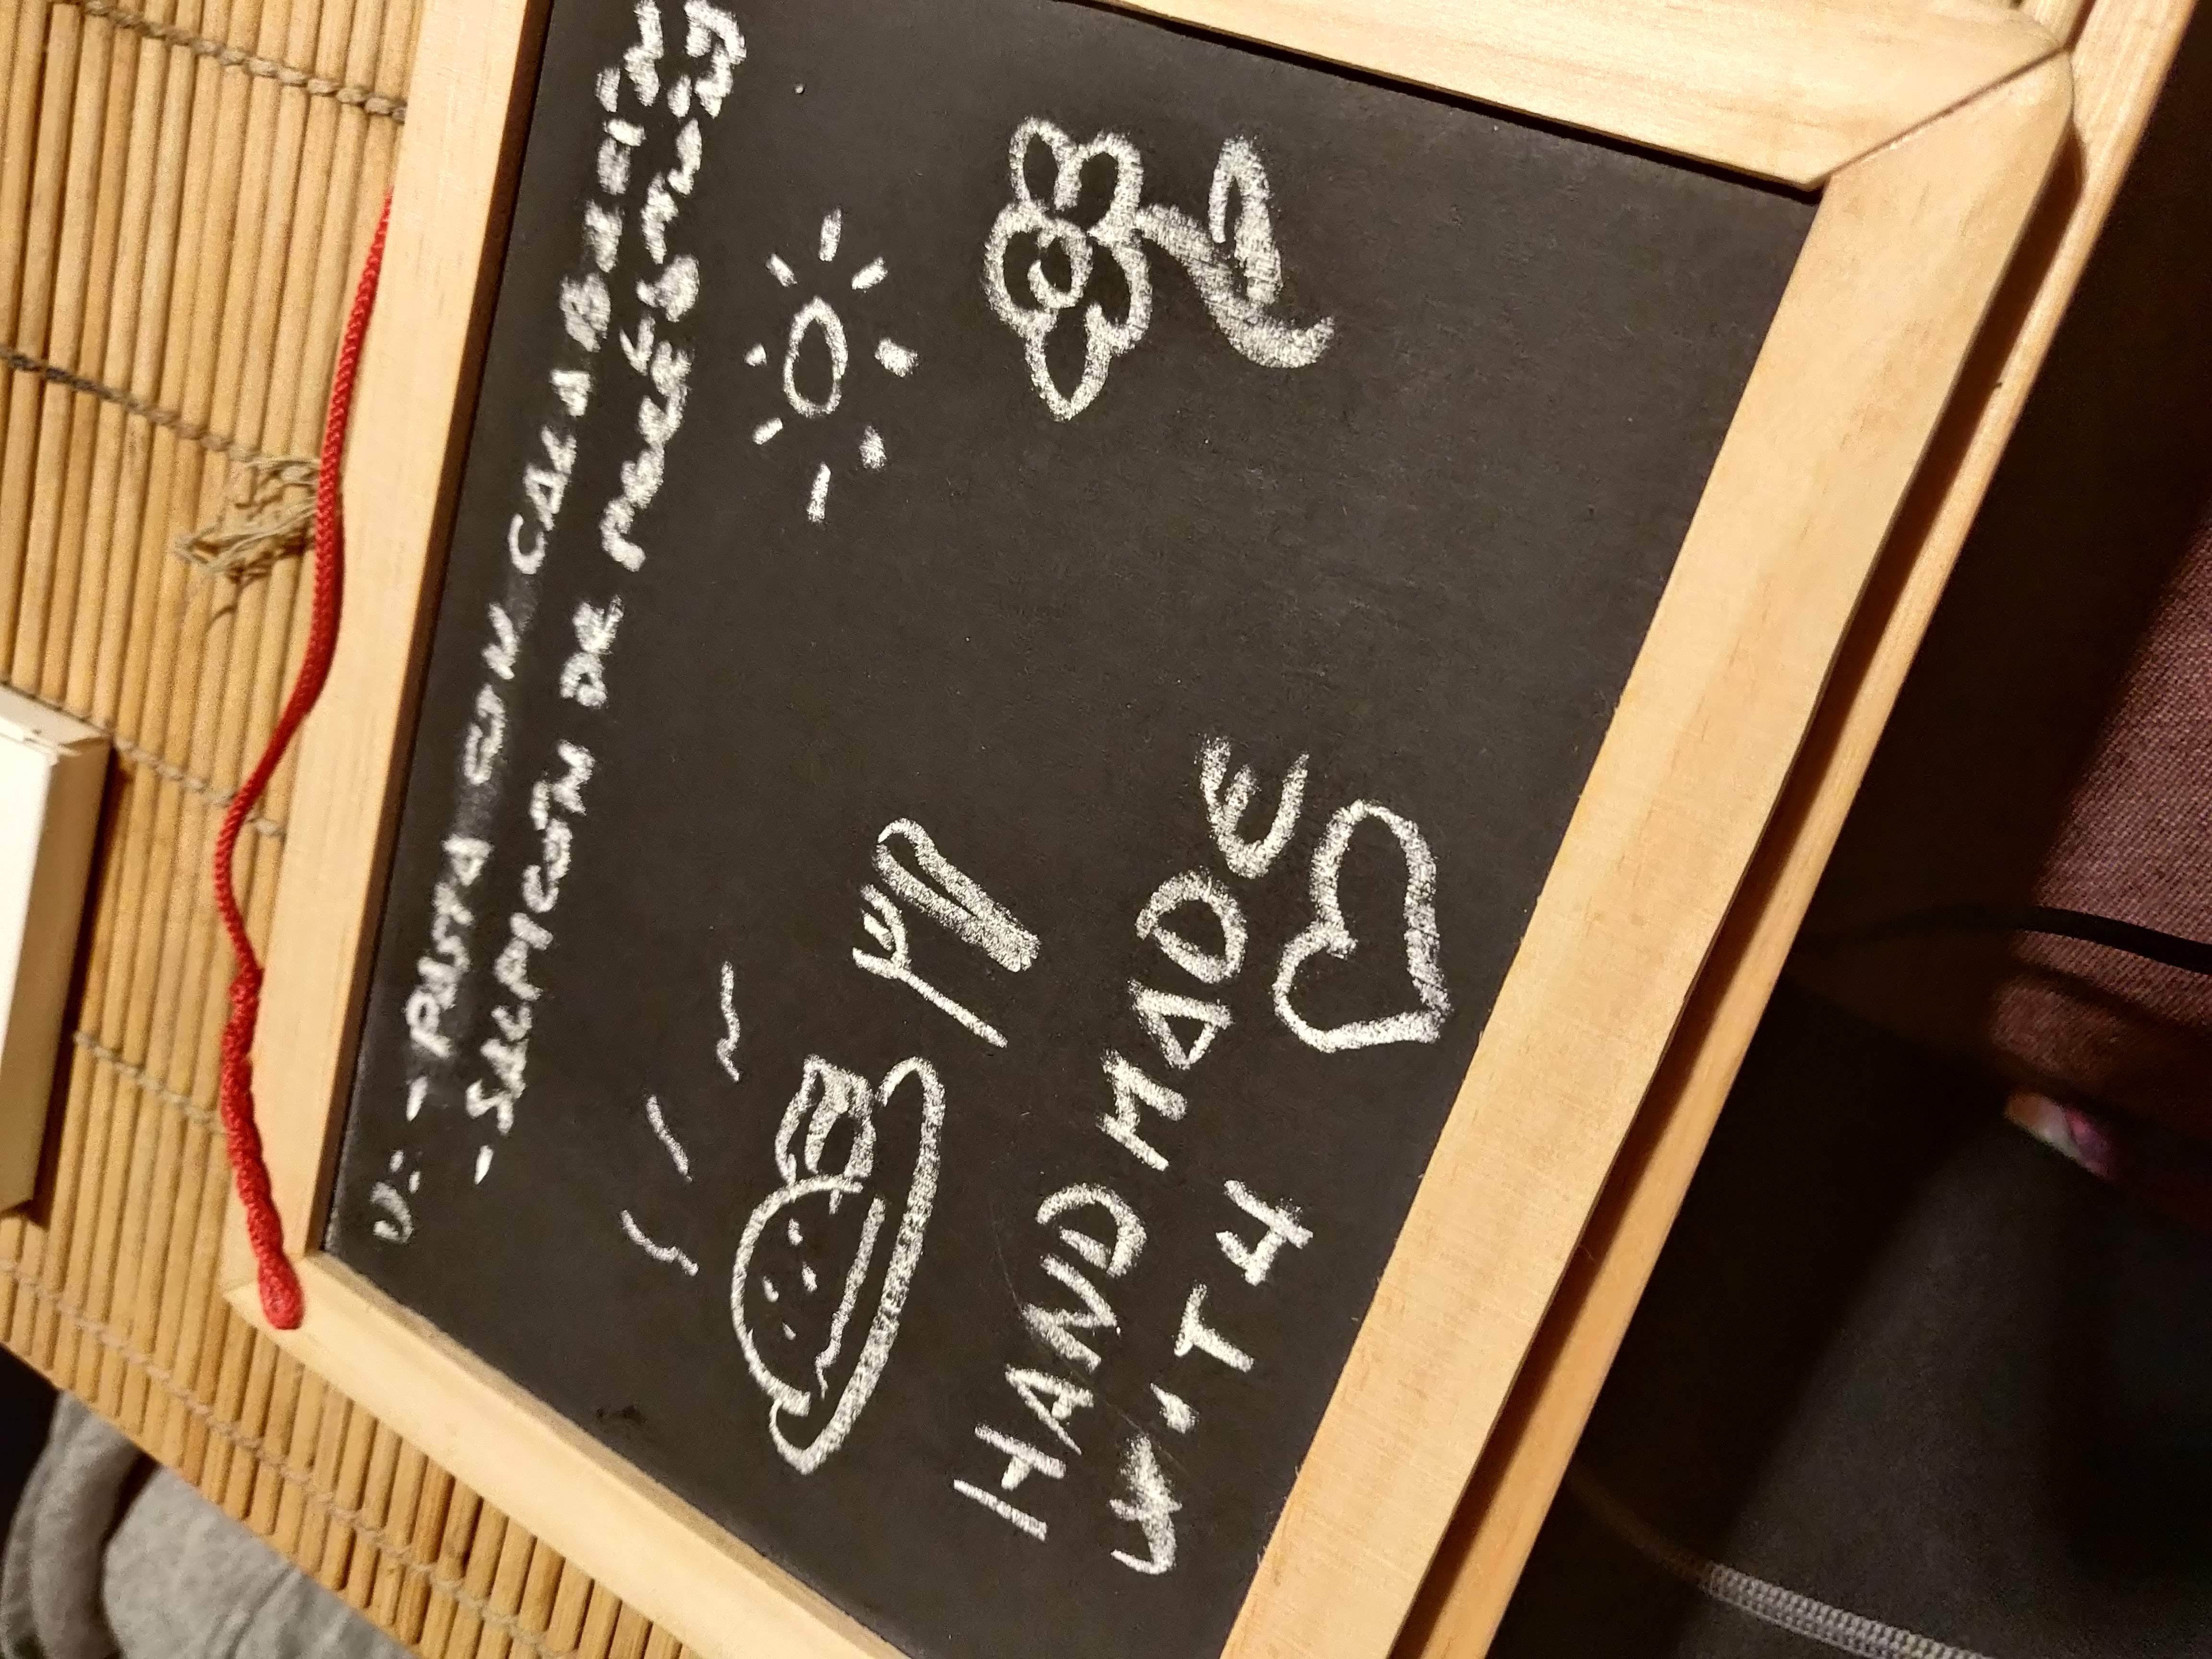 V: - PASTA CON CALABACÍN
- SALPICÓN DE
HANDMADE
WITH